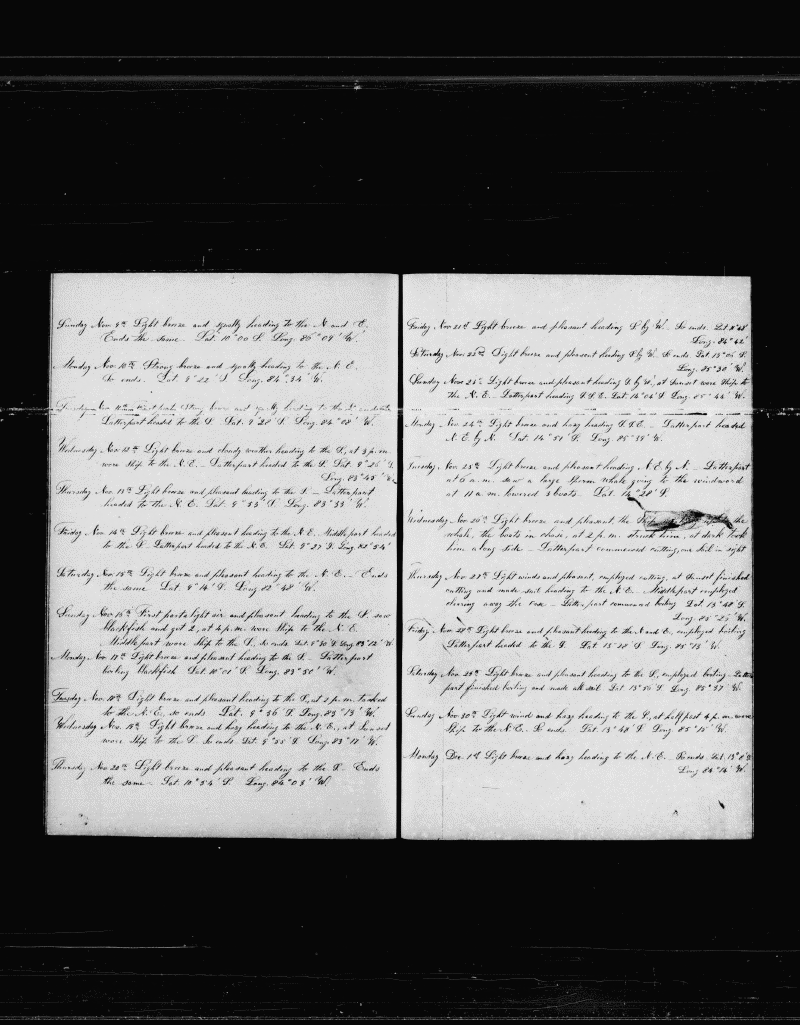 Sunday Nov. 9th Light breeze and squally heading to the N and E.
Ends the same. Lat. 10°00 S. Long. 86°09' W.
Monday Nov. 10th Strong breeze and squally heading to the N. E.
So ends. Lat. 9°22' S Long. 84°34' W.
Strong breeze and squally heading to the
Latterpart headed to the S. Lat. 9°28' S. Long. 84°08' W.
Wednesday Nov 12th Light breeze and cloudy weather heading to the S, at 3 p.m.
wore Ship to the N. E. – Latterpart headed to the S. Lat. 9°26' S.
Long. 83°45' W.
Thursday Nov. 13th Light breeze and pleasant heading to the S. – Latterpart
headed to the N. E. Lat. 9°53' S. Long. 83°33' W.
Friday Nov. 14th Light breeze and pleasant heading to the N. E. Middle part headed
to the S. Latterpart headed to the N. E. Lat. 9°27' S. Long 82°54'
Saturday Nov. 15th Light breeze and pleasant heading to the N. E. – Ends
the same Lat. 9°14' S. Long. 82°48' W.
Sunday Nov. 16th First part light air and pleasant heading to the S. saw
blackfish and got 2, at 4 p.m. wore Ship to the N. E.
Middle part wore Ship to the S, so ends Lat. 9°30' S. Long 83°12' W.
Monday Nov. 17th Light breeze and pleasant heading to the S. – Latterpart
boiling blackfish Lat. 10°01' S. Long. 83°50' W.
Tuesday Nov. 18th Light breeze and pleasant heading to the S, at 2 p.m. tacked
to the N. E, so ends Lat. 9°36' S. Long. 83°13' W.
Wednesday Nov. 19th Light breeze and hazy heading to the N. E., at Sunset
wore Ship to the S. So ends. Lat. 9°55' S. Long. 83°11' W.
Thursday Nov. 20th Light breeze and pleasant heading to the S. Ends
the same. Lat. 10°54' S. Long. 84°03' W.
Friday Nov 21st Light breeze and pleasant heading S. by W. So ends. Lat
Long. 84°42'
Saturday Nov. 22nd Light breeze and pleasant heading S. by W. So ends Lat. 13°06' S.
Long. 85°30' W.
Sunday Nov. 23d Light breeze and pleasant heading S. by W, at Sunset wore Ship to
the N. E. – Latterpart heading S. S. E. Lat. 14°04' S. Long. 85°44' W.
Monday Nov. 24th Light breeze and hazy heading S. S. E. – Latterpart headed
N. E. by N. Lat. 14°51' S. Long. 85°39' W.
Tuesday Nov. 25th Light breeze and pleasant heading N. E. by N. – Latterpart
at 6 a.m. saw a large Sperm Whale going to the windward
at 11 a.m. lowered 3 boats. Lat. 14°28' S.
Wednesday Nov 26th Light breeze and pleasant, the Ship the
whale, the boats in chase, at 2 p.m. struck him, at dark took
him along side – Latterpart commenced cutting, one Sail in sight
Thursday Nov. 27th Light winds and pleasant, employed cutting, at Sunset finished
cutting and made sail heading to the N. E. – Middlepart employed
clearing away the case – Latterpart commenced boiling Lat 13°48' S.
Long. 85°25' W.
Friday Nov 28th Light breeze and pleasant heading to the N and E, employed boiling
Latterpart headed to the S. Lat. 13°28' S. Long. 85°13' W.
Saturday Nov. 29th Light breeze and pleasant heading to the S, employed boiling – Latter
part finished boiling and made all sail Lat 13°56' S. Long. 85°37' W.
Sunday Nov 30th Light wind and hazy heading to the S, at half past 4 p.m. wore
Ship to the N. E. So ends. Lat. 13°48' S Long. 85°15' W.
Monday Dec. 1st Light breeze and hazy heading to the N. E. So ends. Lat.
Long 84°14' W.